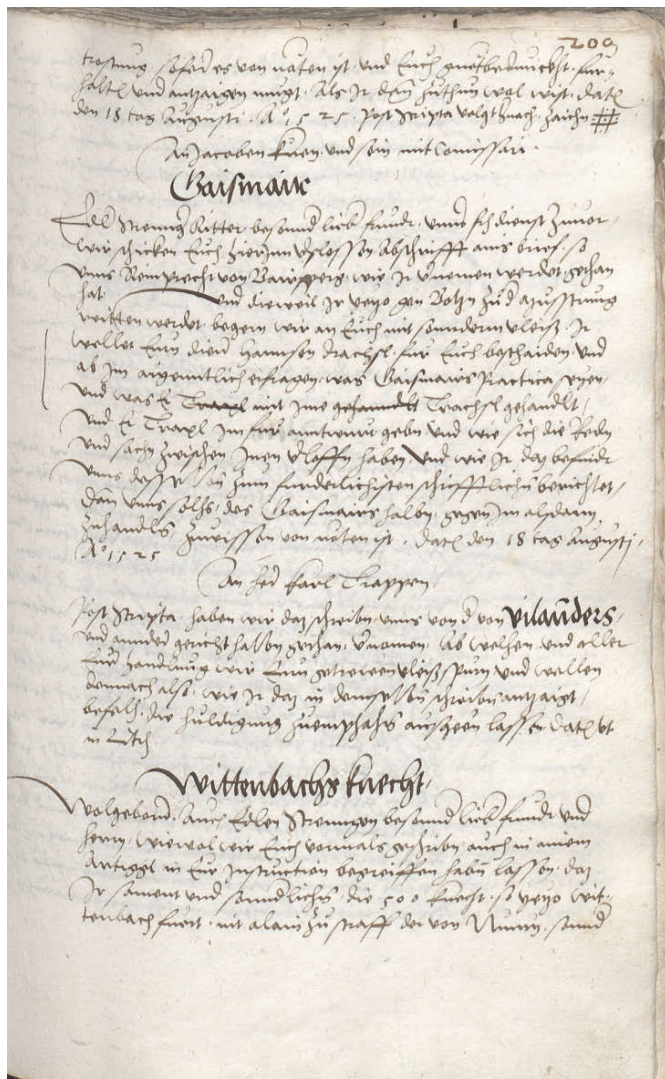 209
trostung, sofer es von nöten ist, und Euch guetbedunckht, für-
halten und antzaigen mugt. Als Ir dan zuthun wol wist. Datum
den 18 tag Augusti. Ao 1525. Post Scripta volgt hernach, zaichn #
An Jacoben Kuen und sein mit Comissari.
Gaismair
Edl Strenng Ritter besonnder lieb freundt, unnser dienst zuvor,
wir schicken Euch hierinn verslossen Abschrifft ains brief, so
unns von wie Ir vernemen werdet gethan
hat. Und dieweil Ir yetzo gen Botzn zu der Musstrung
reitten werdet, begern wir an Euch mit sonnderm vleiß, Ir
wellet Eurn diener Hannsen Trachsl, für Euch beschaiden, und
ab im aigenntlich erfragen, was Gaismairs Practica seyen,
und was Er Traxl mit ime gehanndlt Trachsl gehandlt,
und Er Traxl im für anntwurt geben und wie sich die Reden
und sachen zwischen Inen verloffen haben, und wie Ir das befindt
unns desselben zum furderlichisten schrifftlichen berichtet,
dan unns solhs, des Gaismairs halben, gegen Im alsdann
zuhandln, zuwissen von nöten ist. Datum den 18 tag Augusti,
Ao 1525
An hern Karl Trappen.
Post Scripta, haben wir das schreiben, unns von der von Vilanders,
und annder gericht halben gethan, vernomen, Ab welhem und aller
Eur handlung wir Eurn getrewen vleiß spurn, und wellen
demnach also, wie Ir das in demselben schreiben antzaigt,
befelh, die huldigung zuemphahen ausgeen lassen. Datum ut
in litteris
Wittenbachs knecht,
Wolgeborn, Auch Edlen Strenngen besonnder lieb freundt und
herrn, wiewol wir Euch vormals geschriben, auch in ainem
Artiggl in Eur Instruction begreiffen haben lassen, daz
Ir sament und sonnderlichen, die 500 knecht, so yetzo Wit-
tenbach fuert, nit alain zu straff der von Nunn, sonnder